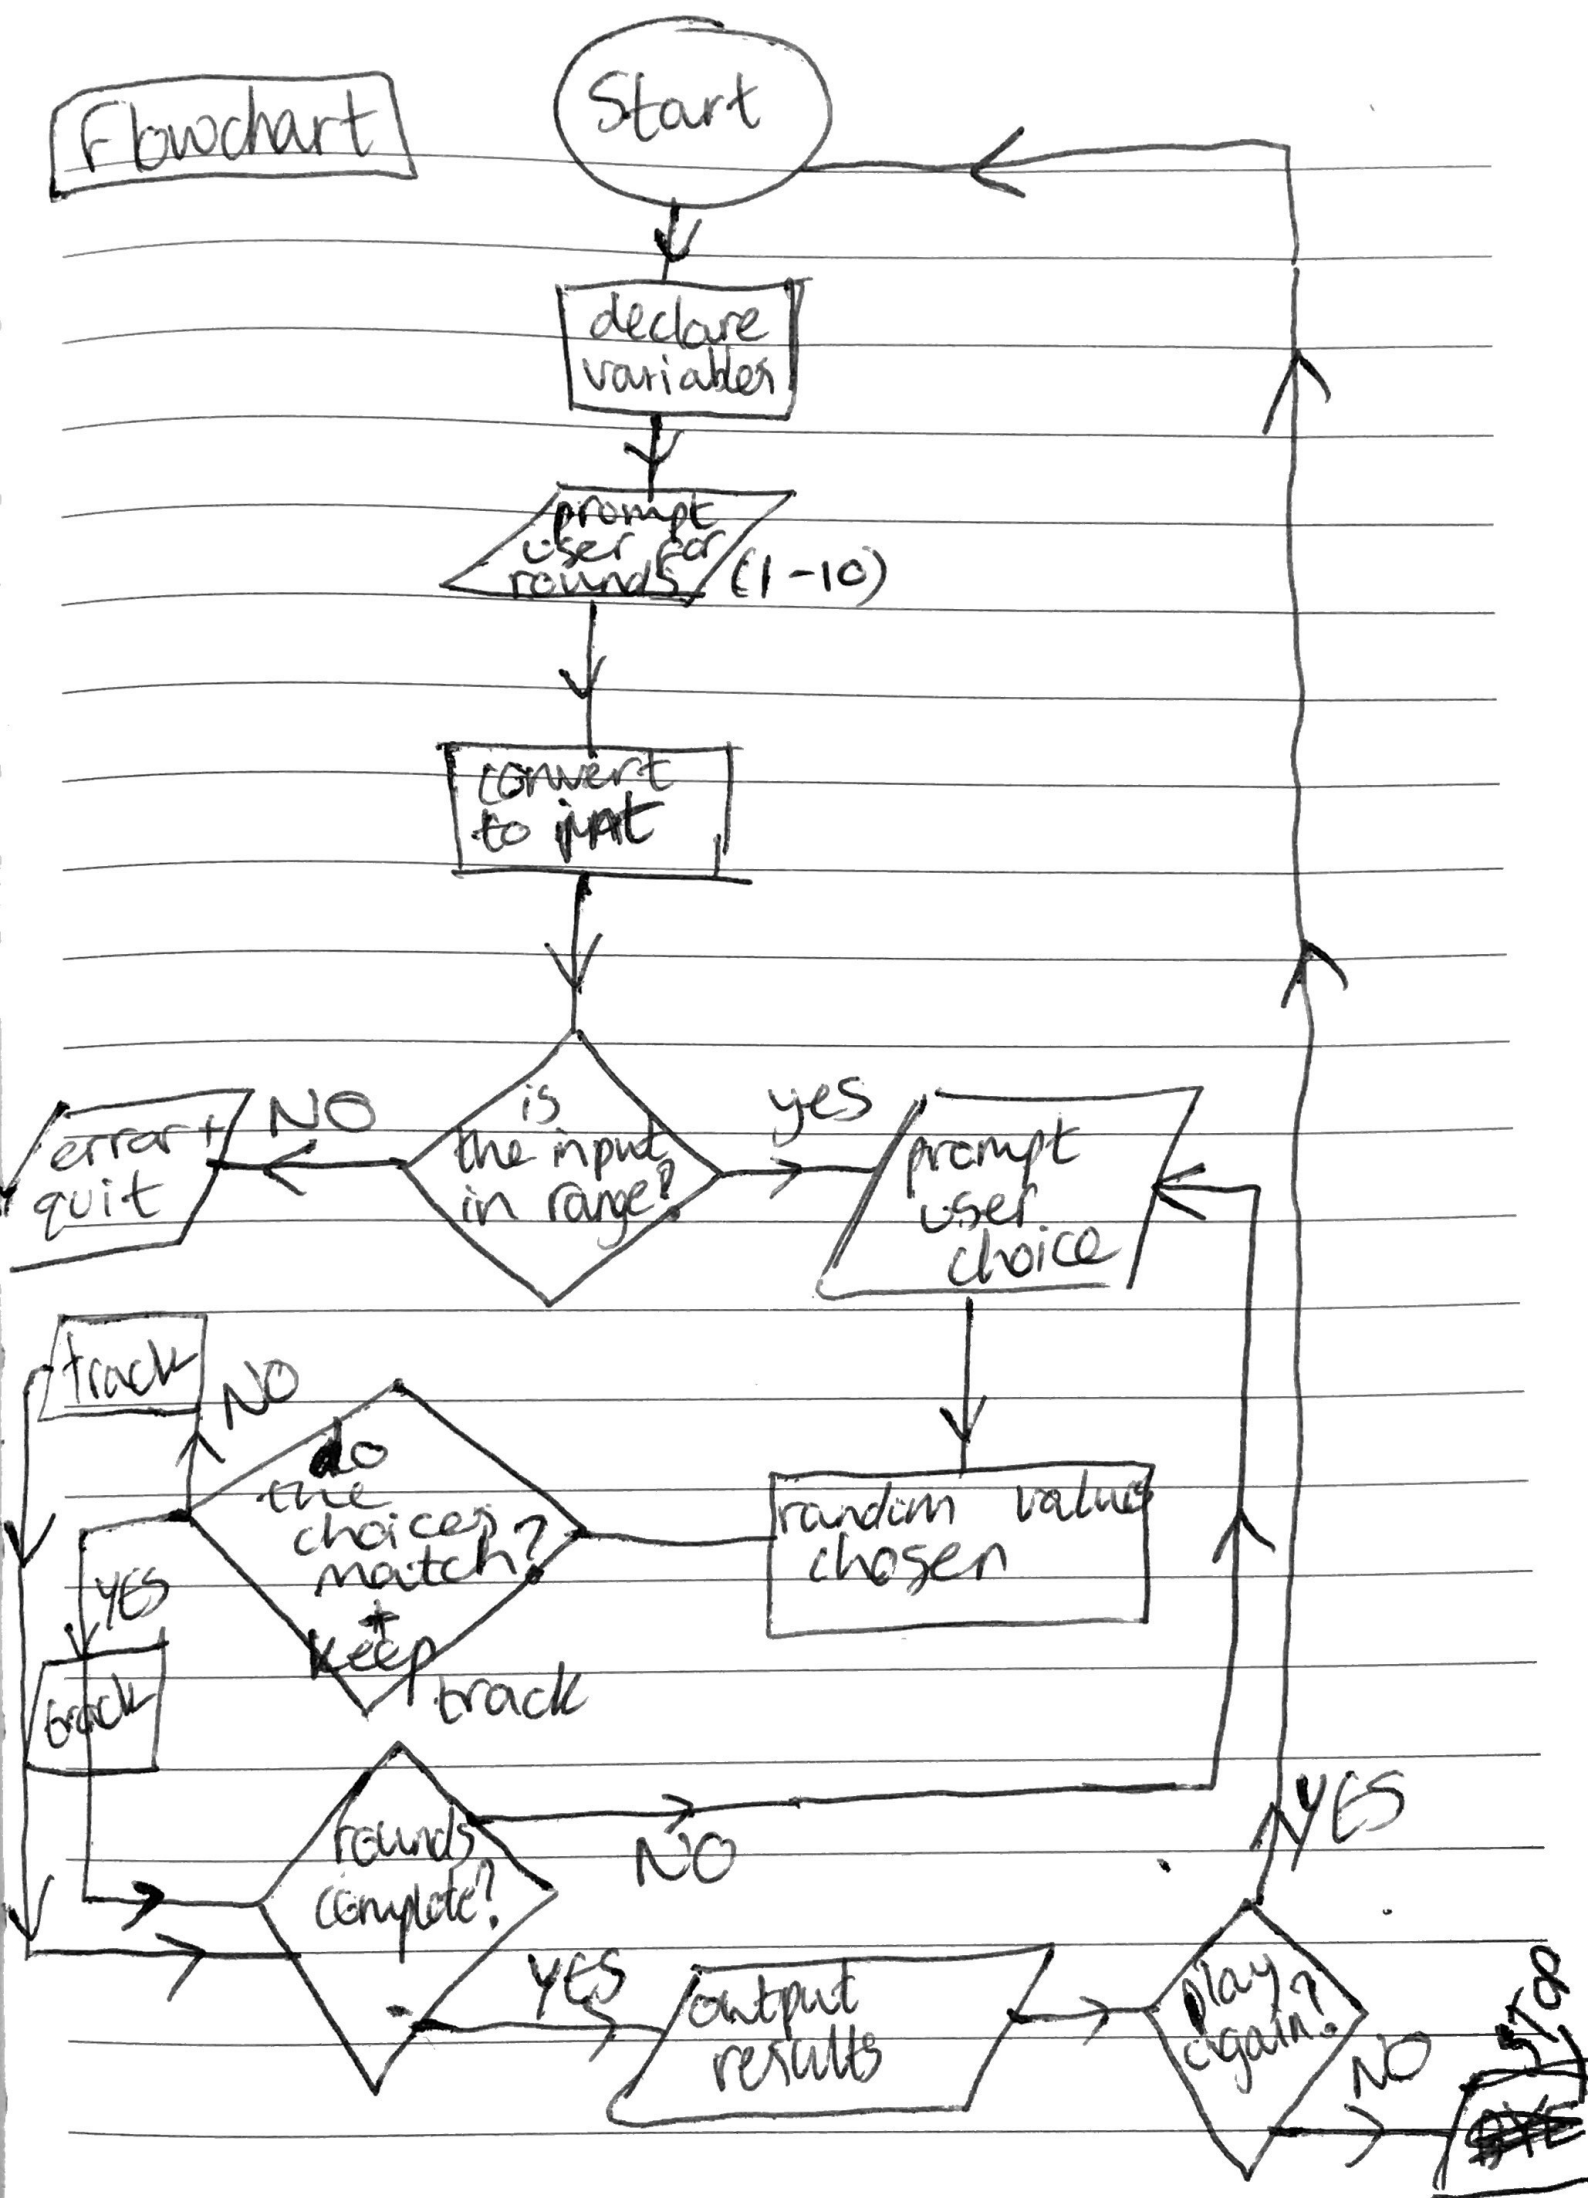 Flowchart
Start
declare
variables
prompt
user for
rounds
(1-10)
convert
to int
is
the input
in range?
NO
error +
quit
yes
prompt
user
choice
random value
chosen
do
the
choices
match?
+
keep
track
NO
track
YES
track
rounds
complete?
NO
YES
output
results
play
again?
YES
NO
STOP